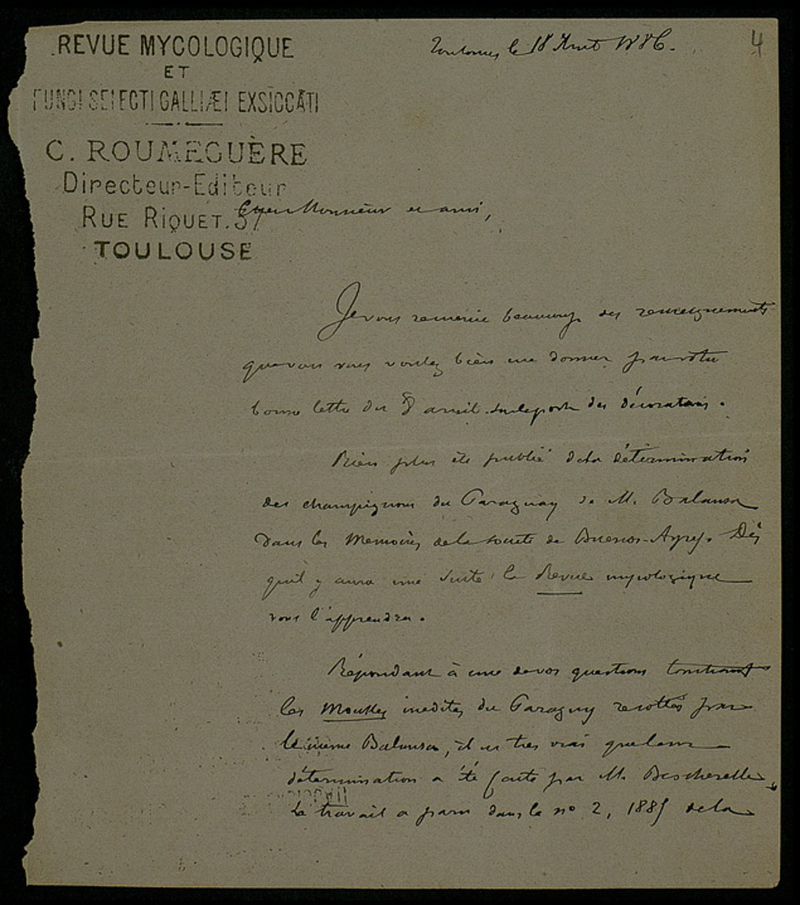 REVUE MYCOLOGIQUE
ET
FUNGI SELECTI GALLIÆI EXSICCATI
C. ROUMEGUÈRE
Directeur-Editeur
RUE RIQUET. 37
TOULOUSE
Toulouse, le 18 Aout 1886.
4
Cher Monsieur et ami,
Je vous remercie beaucoup des renseignements
que vous voulez bien me donner par votre
bonne lettre du 8 des décorations.
Rien plus été publié de la détermination
des champignons du Paraguay de M. Balansa
dans les Memoires de la société de Buenos-Ayres. Dès
qu'il y aura une suite la Revue mycologique
vous l'apprendra.
Répondant à une de vos questions touchant
les Mousses inedites du Paraguay recoltées par
le même Balansa, il est tres vrai que leur
détermination a été faite par M. Bescherelle.
Le travail a paru dans le no 2, 1885 de la